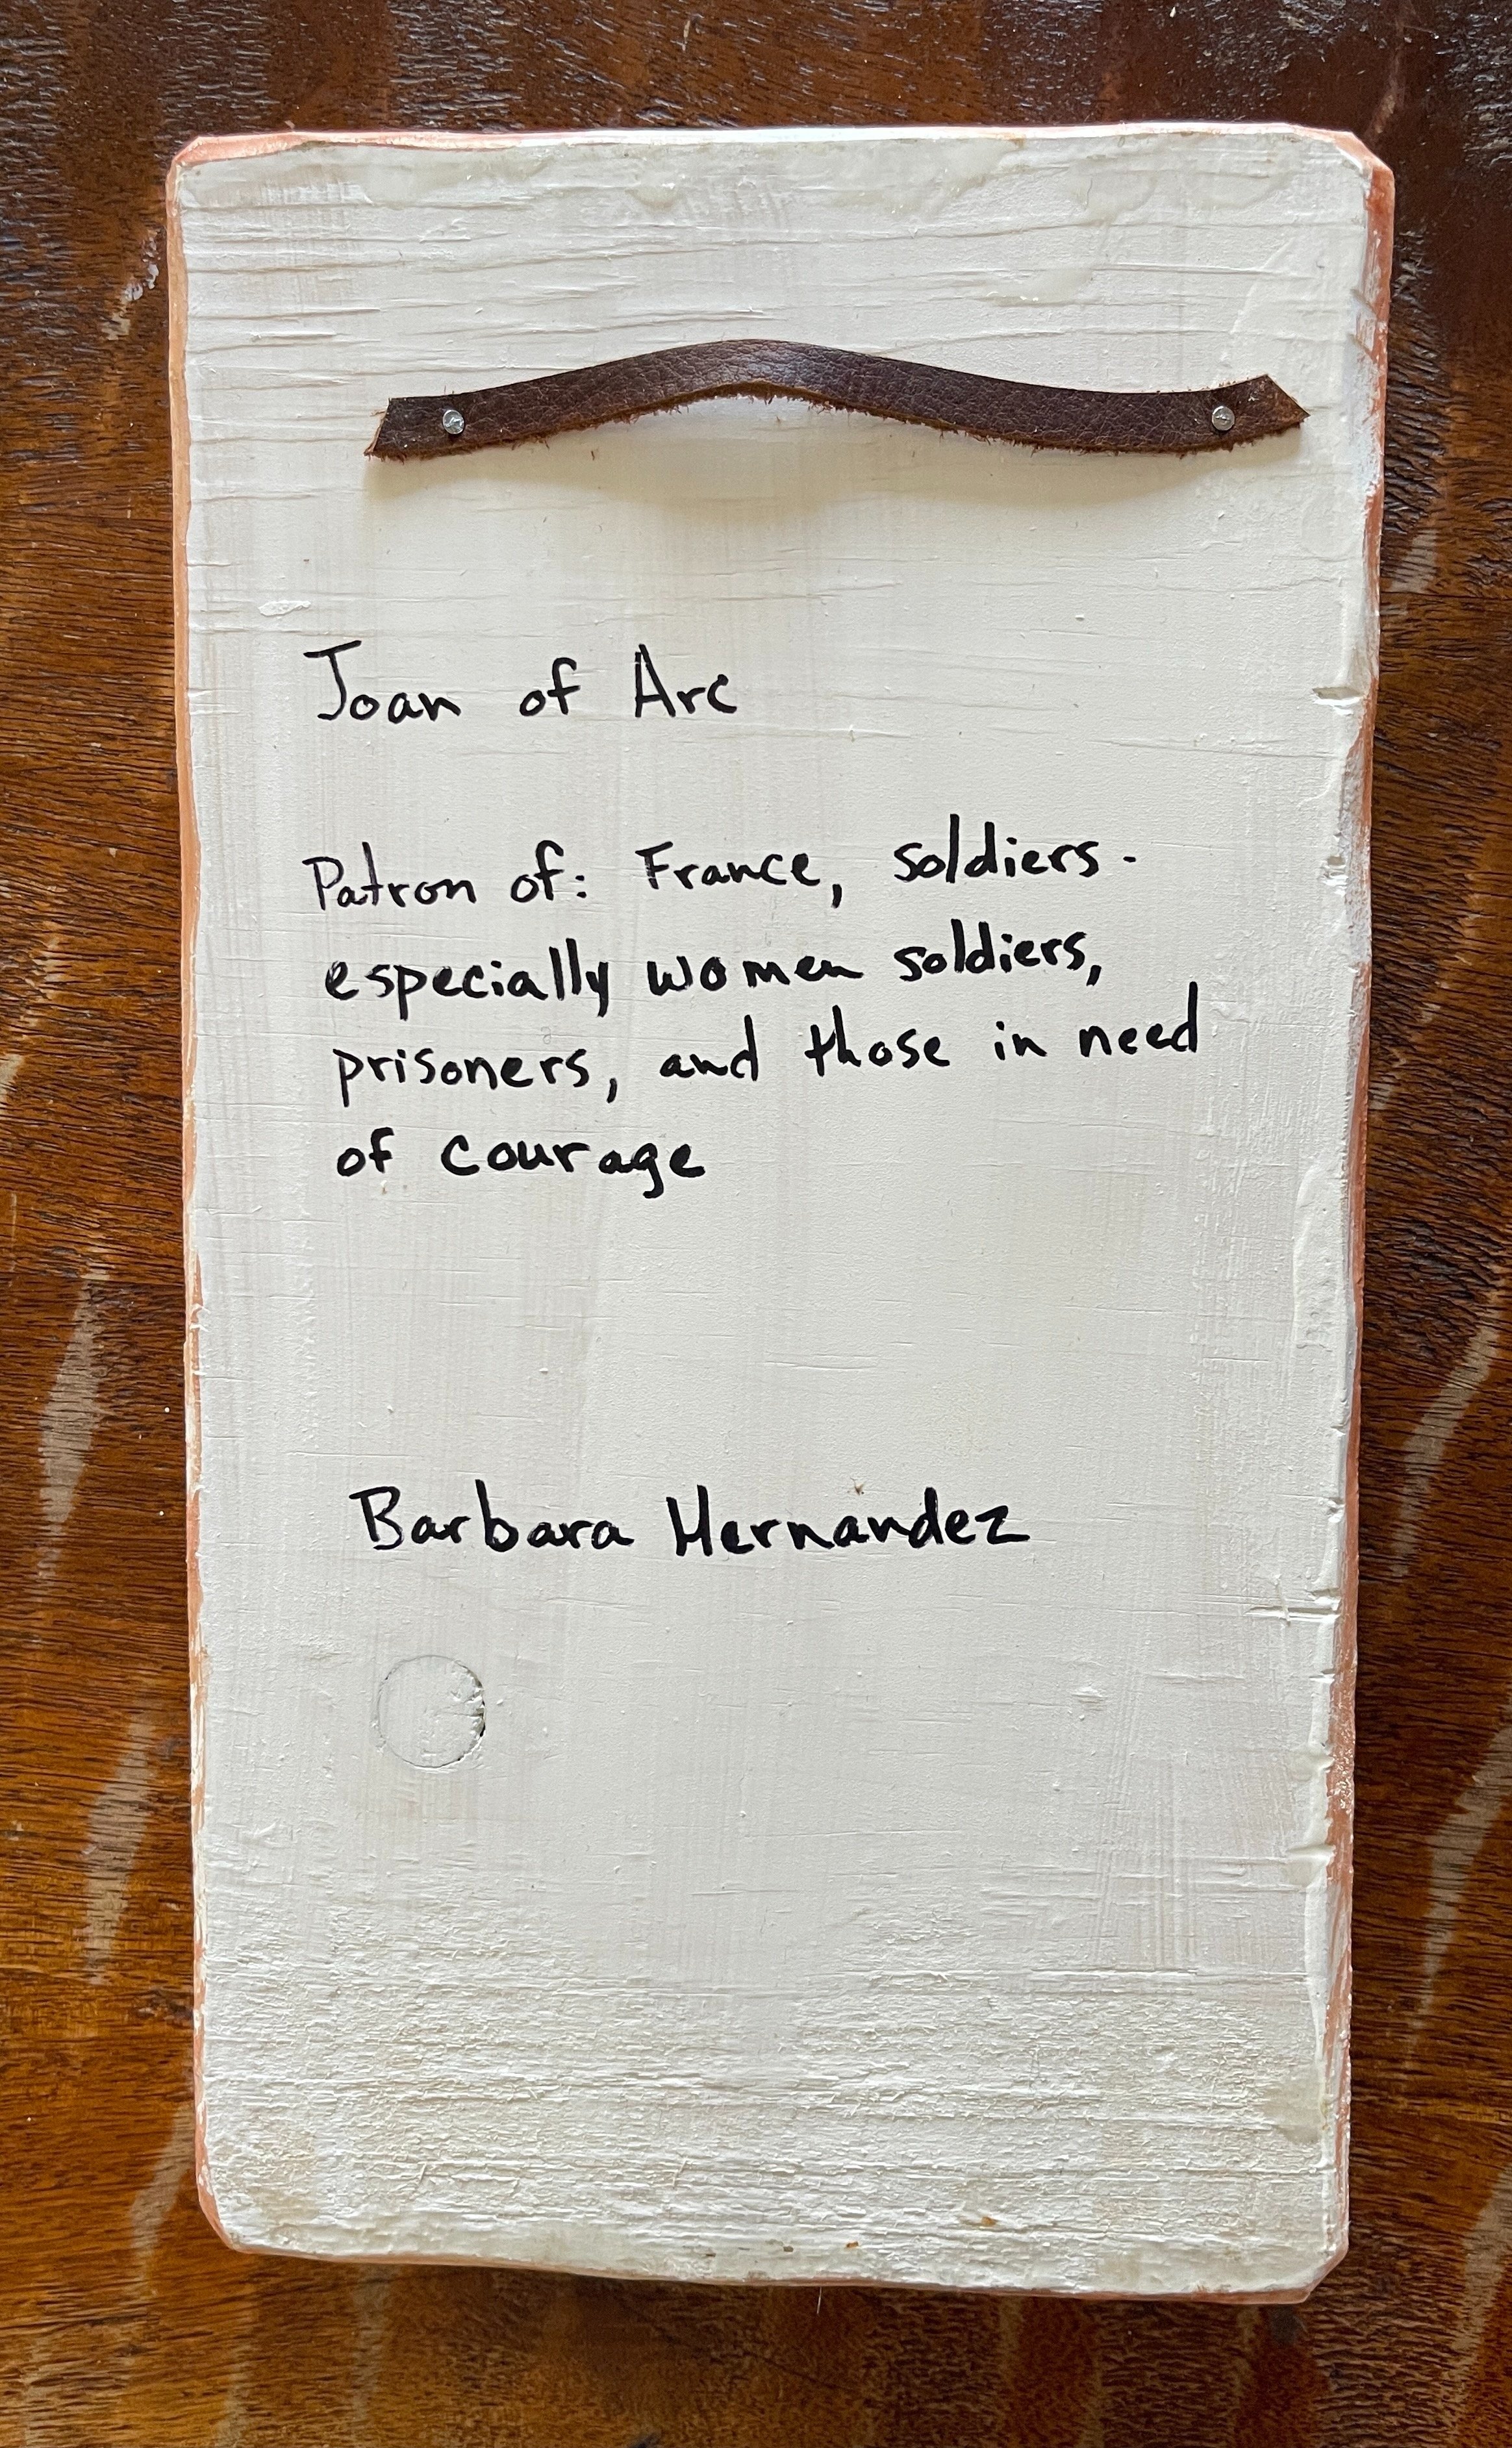 Joan of Arc
Patron of: France, soldiers -
especially women soldiers,
prisoners, and those in need
of courage
Barbara Hernandez